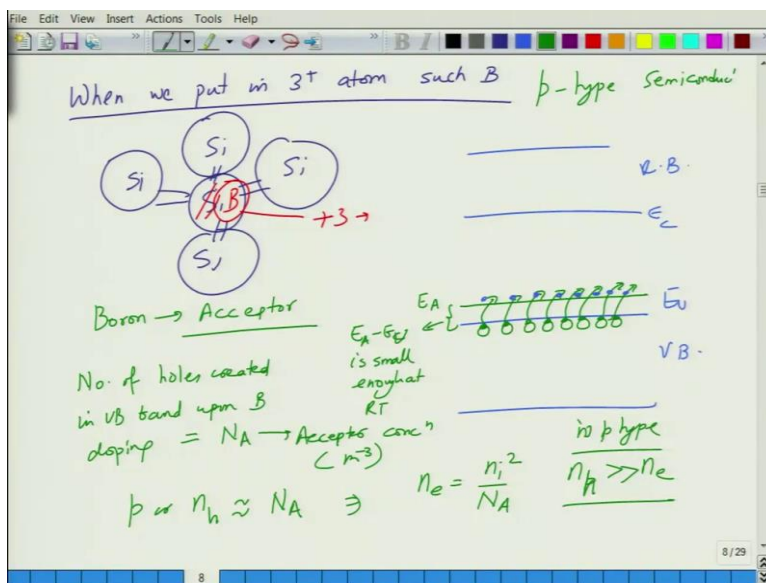 File Edit View Insert Actions Tools Help
When we put in 3+ atom such B
p-type Semiconduc
Si
Si
Si
Si
B
+3 →
Si
C.B.
Ec
EA
Ev
V B.
Boron → Acceptor
EA-Ev
is small
enough at
RT
No. of holes created
in VB band upon B
doping = NA → Accepter concⁿ
(m⁻³)
p or nh ≈ NA ⇒ ne = ni² / NA
in p type
nh >> ne
8/29
8